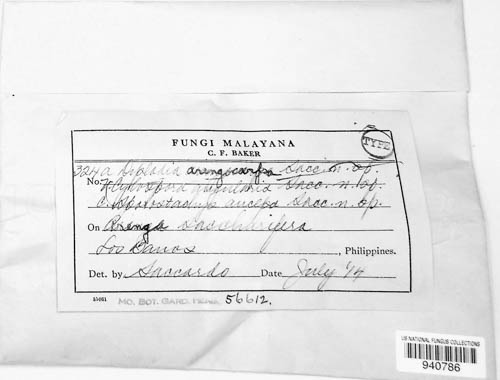 FUNGI MALAYANA
C. F. BAKER
TYPE
324a Diplodia arengocarpa Sacc. n. sp.
No. Sacc. n. sp.
C. anceps Sacc. n. sp.
On Arenga saccharifera
Los Banos, Philippines.
Det. by Saccardo Date July '14
MO. BOT. GARD. HERB. 56612.
US NATIONAL FUNGUS COLLECTIONS
940786